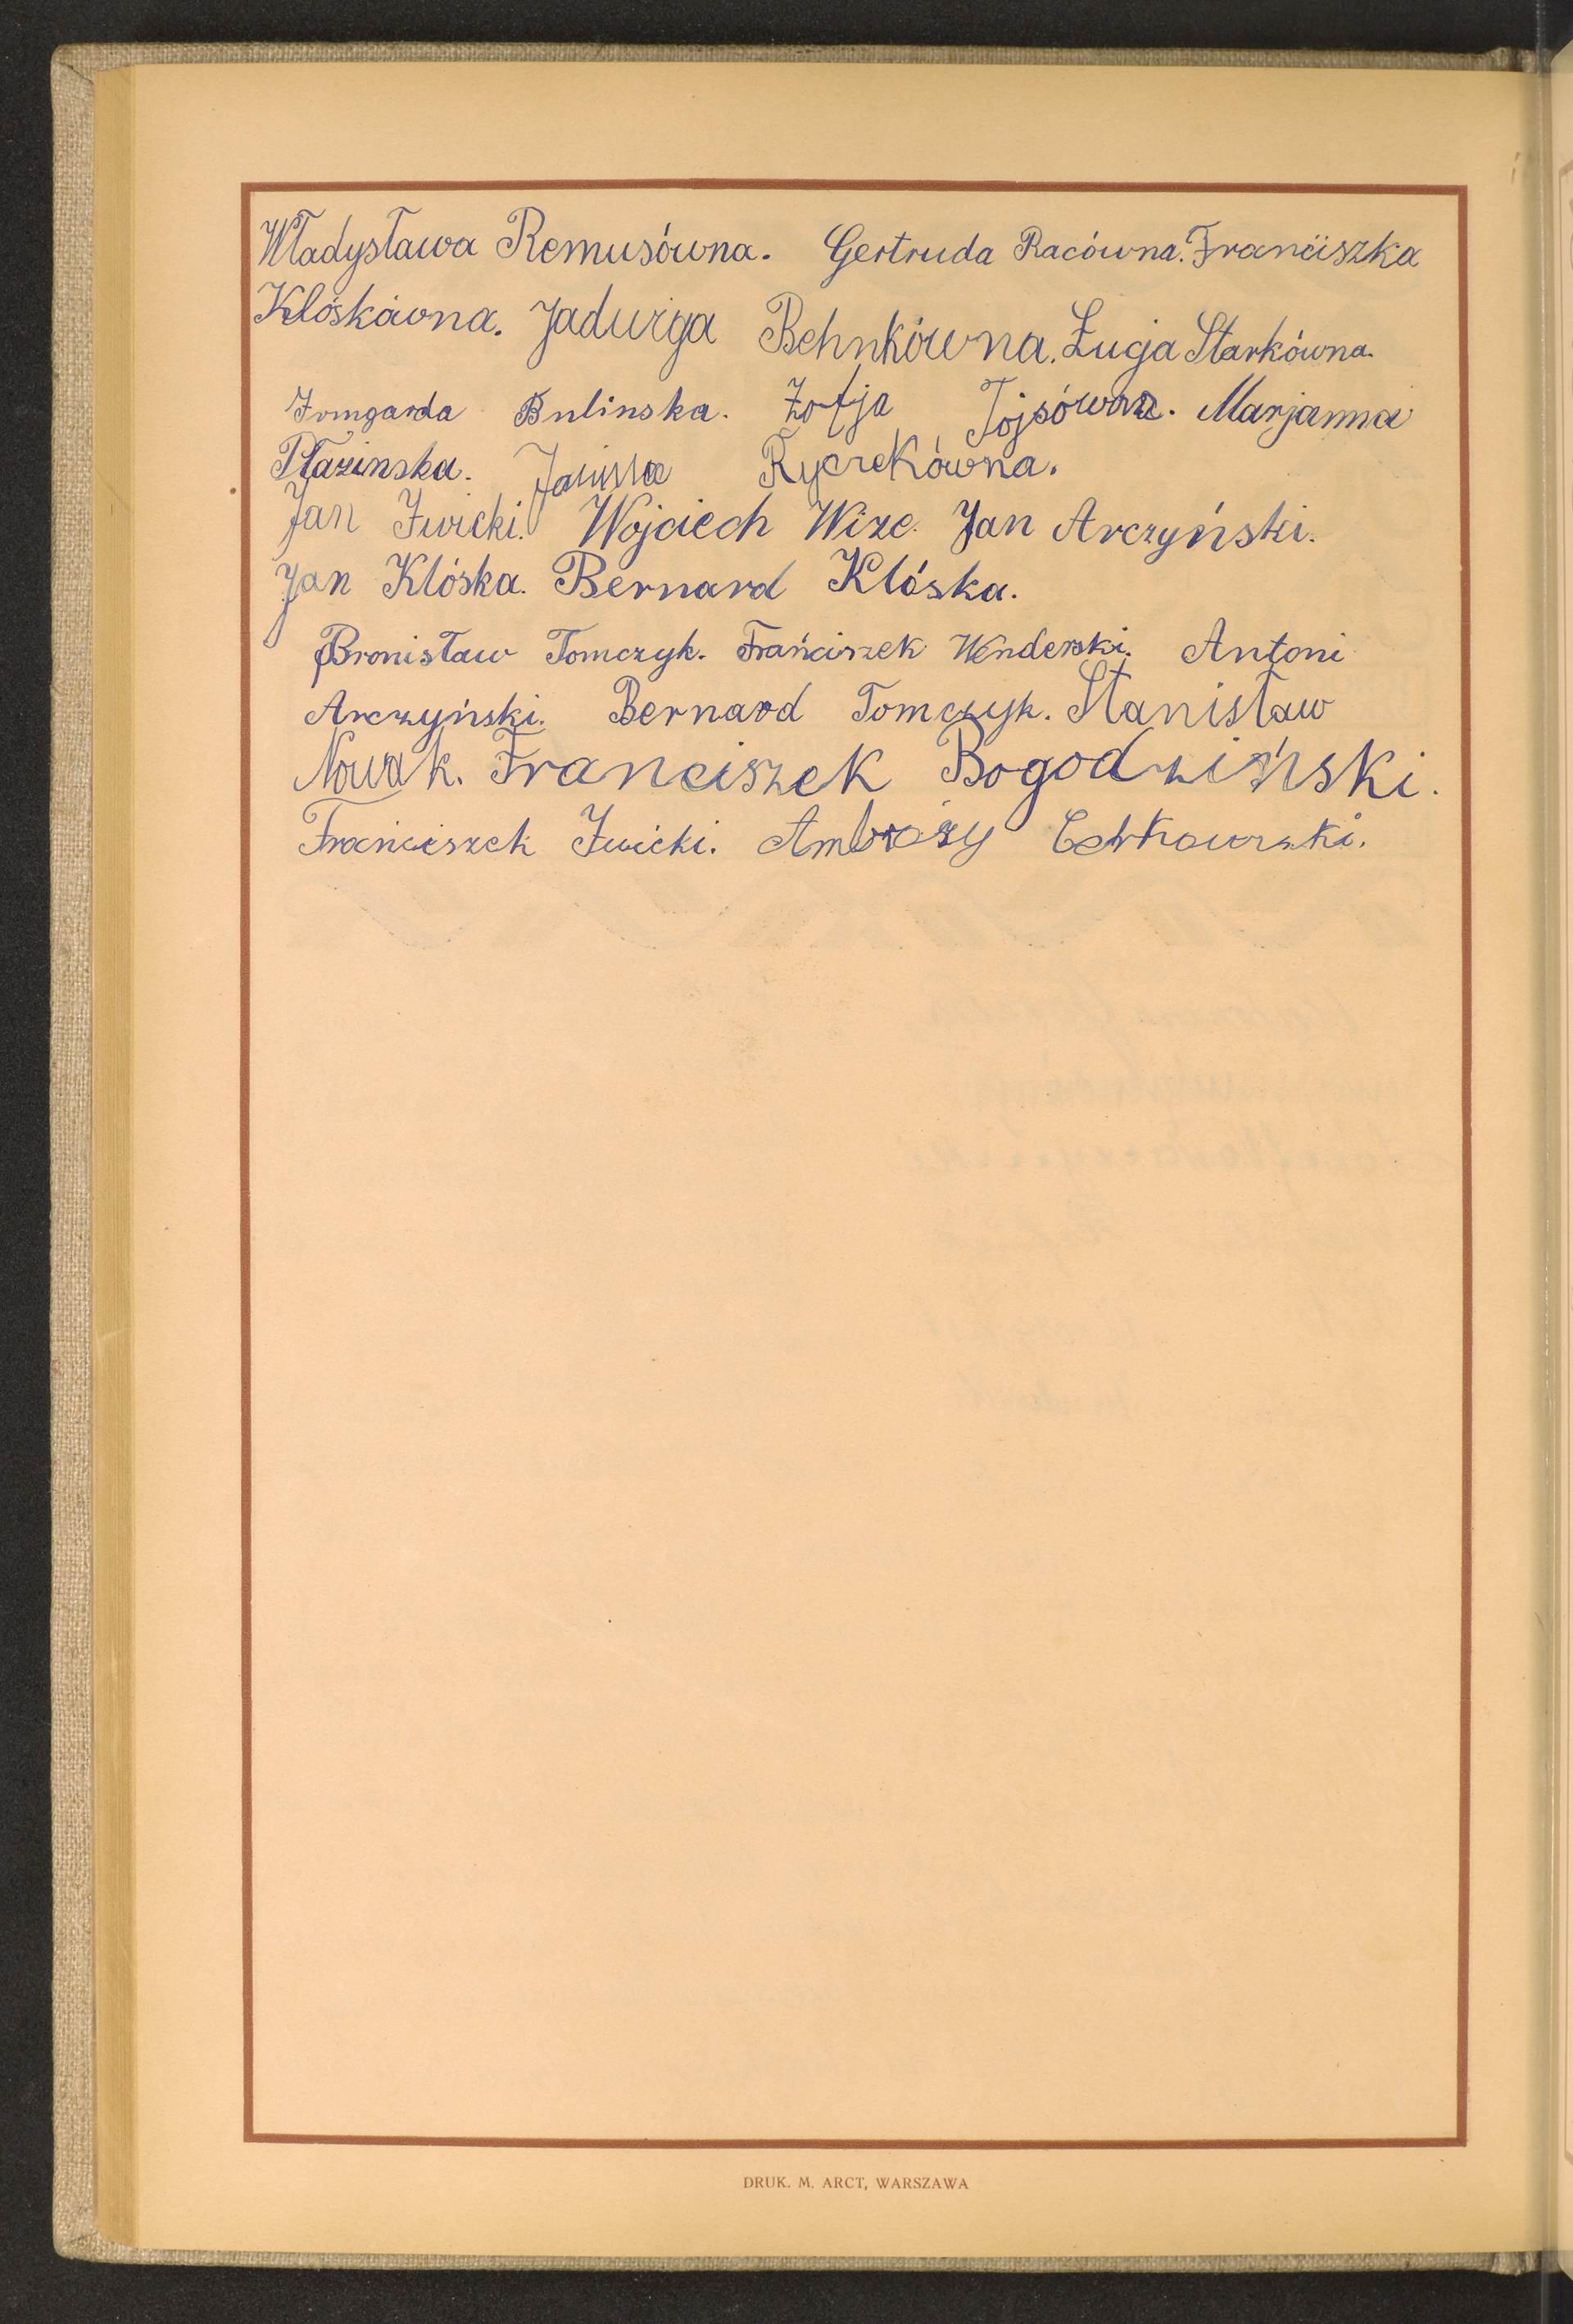 Władysława Remusówna. Gertruda Racówna. Franciszka
Klóskówna. Jadwiga Behnkówna. Łucja Starkówna.
Irmgarda Bulinska. Zofja Tojsówna. Marjanna
Płazinska. Janina Ryczekówna.
Jan Iwicki. Wojciech Wize. Jan Arczyński.
Jan Klóska. Bernard Klóska.
Bronisław Tomczyk. Frańciszek Wenderski. Antoni
Arczyński. Bernard Tomczyk. Stanisław
Nowak. Franciszek Bogodziński.
Frańciszek Iwicki. Ambroży
DRUK. M. ARCT, WARSZAWA